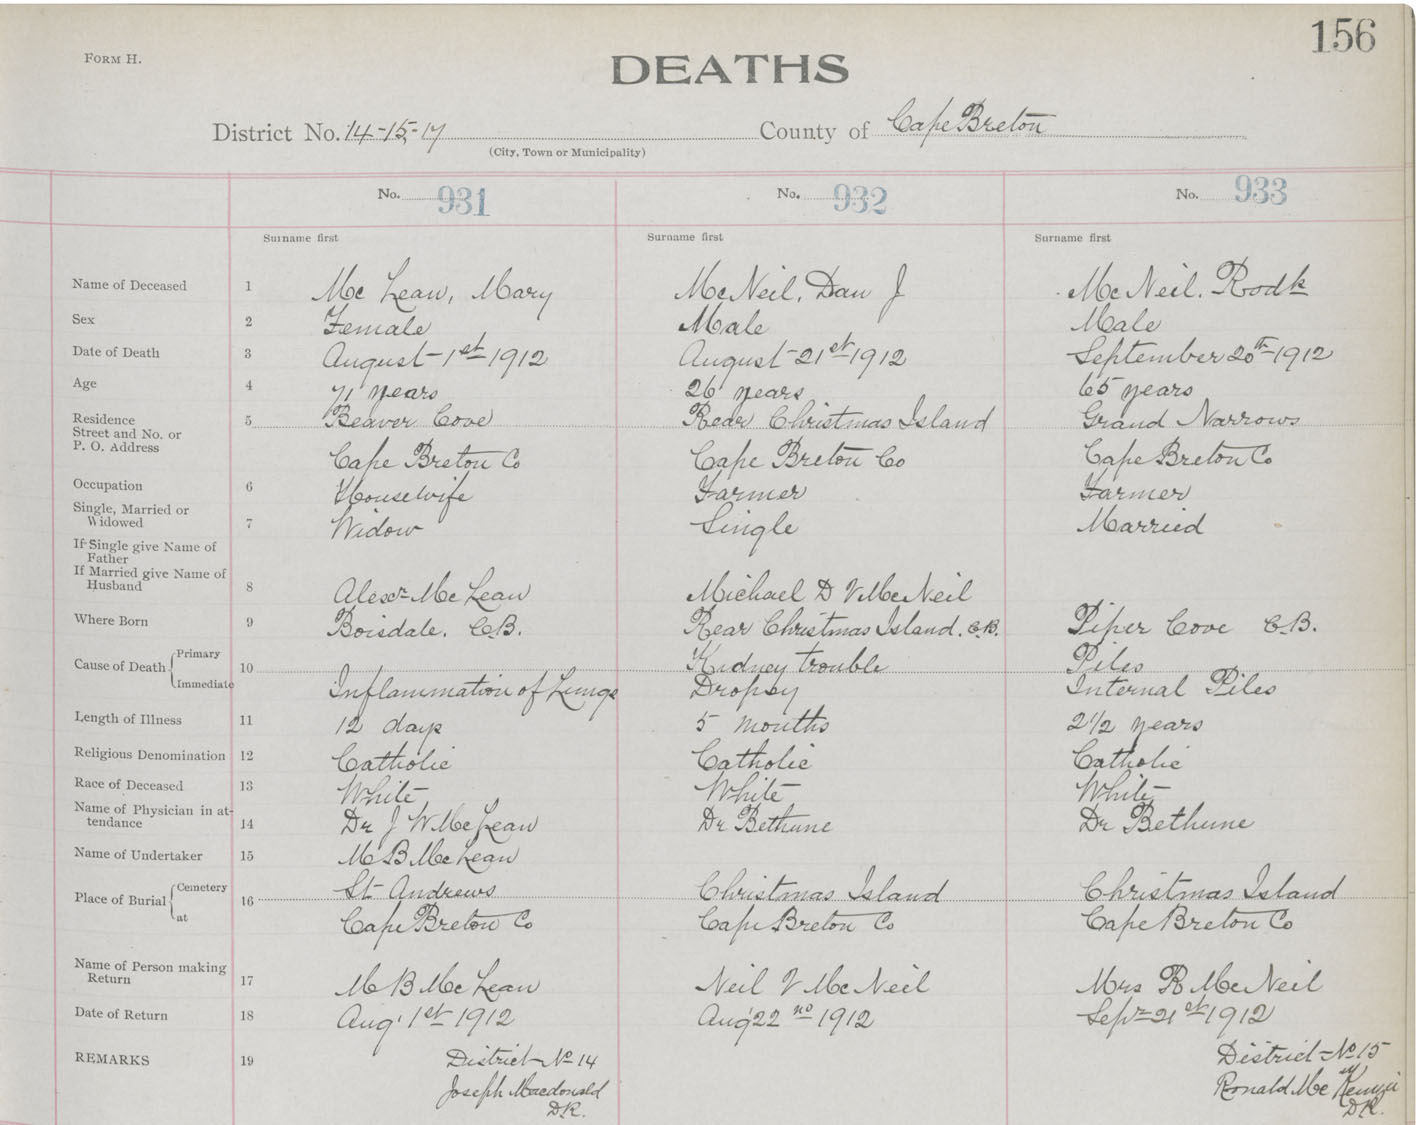 156
FORM H.
DEATHS
District No. 14-15-17 County of Cape Breton
(City, Town or Municipality)
No. 931 No. 932 No. 933
Surname first Surname first Surname first
Name of Deceased 1 Mc Lean, Mary McNeil, Dan J McNeil, Rodk
Sex 2 Female Male Male
Date of Death 3 August 1st 1912 August 21st 1912 September 20th 1912
Age 4 71 years 26 years 65 years
Residence 5 Beaver Cove Rear Christmas Island Grand Narrows
Street and No. or
P. O. Address
Cape Breton Co Cape Breton Co Cape Breton Co
Occupation 6 Housewife Farmer Farmer
Single, Married or
Widowed 7 Widow Single Married
If Single give Name of
Father
If Married give Name of
Husband 8 Alexr Mc Lean Michael D V McNeil
Where Born 9 Boisdale. C.B. Rear Christmas Island. C.B. Piper Cove C.B.
Primary Kidney trouble Piles
Cause of Death 10
Immediate Inflammation of Lungs Dropsy Internal Piles
Length of Illness 11 12 days 5 months 2 1/2 years
Religious Denomination 12 Catholic Catholic Catholic
Race of Deceased 13 White White White
Name of Physician in at-
tendance 14 Dr J W McLean Dr Bethune Dr Bethune
Name of Undertaker 15 M B McLean
Cemetery St Andrews Christmas Island Christmas Island
Place of Burial 16
at Cape Breton Co Cape Breton Co Cape Breton Co
Name of Person making
Return 17 M B McLean Neil V McNeil Mrs R McNeil
Date of Return 18 Aug 1st 1912 Aug 22no 1912 Sepr 21st 1912
REMARKS 19 District No 14 District No 15
Joseph Macdonald Ronald Mc Kenzie
D.R. D.R.